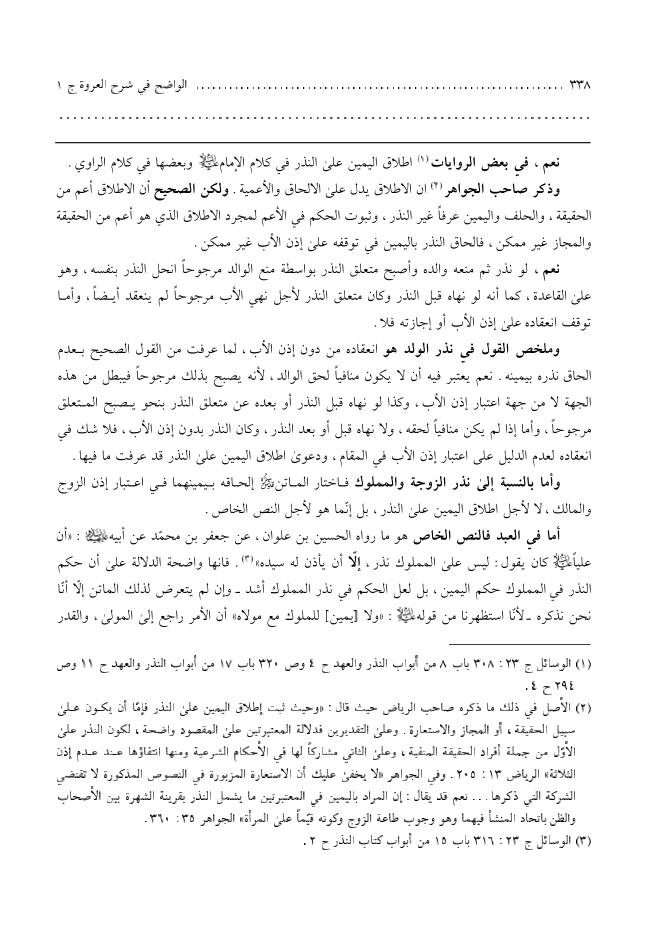 ٣٣٨ ................................................................. الواضح في شرح العروة ج ١
................................................................................
نعم ، في بعض الروايات(١) اطلاق اليمين علىٰ النذر في كلام الإمام عليه السلام وبعضها في كلام الراوي .
وذكر صاحب الجواهر(٢) ان الاطلاق يدل علىٰ الالحاق والأعمية . ولكن الصحيح أن الاطلاق أعم من
الحقيقة ، والحلف واليمين عرفاً غير النذر ، وثبوت الحكم في الأعم لمجرد الاطلاق الذي هو أعم من الحقيقة
والمجاز غير ممكن ، فالحاق النذر باليمين في توقفه علىٰ إذن الأب غير ممكن .
نعم ، لو نذر ثم منعه والده وأصبح متعلق النذر بواسطة منع الوالد مرجوحاً انحل النذر بنفسه ، وهو
علىٰ القاعدة ، كما أنه لو نهاه قبل النذر وكان متعلق النذر لأجل نهي الأب مرجوحاً لم ينعقد أيـضاً ، وأمـا
توقف انعقاده علىٰ إذن الأب أو إجازته فلا .
وملخص القول في نذر الولد هو انعقاده من دون إذن الأب ، لما عرفت من القول الصحيح بـعدم
الحاق نذره بيمينه . نعم يعتبر فيه أن لا يكون منافياً لحق الوالد ، لأنه يصبح بذلك مرجوحاً فيبطل من هذه
الجهة لا من جهة اعتبار إذن الأب ، وكذا لو نهاه قبل النذر أو بعده عن متعلق النذر بنحو يـصبح المـتعلق
مرجوحاً ، وأما إذا لم يكن منافياً لحقه ، ولا نهاه قبل أو بعد النذر ، وكان النذر بدون إذن الأب ، فلا شك في
انعقاده لعدم الدليل علىٰ اعتبار إذن الأب في المقام ، ودعوىٰ اطلاق اليمين علىٰ النذر قد عرفت ما فيها .
وأما بالنسبة إلىٰ نذر الزوجة والمملوك فـاختار المـاتن قدس سره إلحاقه بـيمينهما فـي اعـتبار إذن الزوج
والمالك ، لا لأجل اطلاق اليمين علىٰ النذر ، بل إنّما هو لأجل النص الخاص .
أما في العبد فالنص الخاص هو ما رواه الحسين بن علوان ، عن جعفر بن محمّد عن أبيه عليه السلام : «أن
علياً عليه السلام كان يقول : ليس علىٰ المملوك نذر ، إلّا أن يأذن له سيده»(٣) . فانها واضحة الدلالة علىٰ أن حكم
النذر في المملوك حكم اليمين ، بل لعل الحكم في نذر المملوك أشد ـ وإن لم يتعرض لذلك الماتن إلّا أنّا
نحن نذكره ـ لأنّا استظهرنا من قوله عليه السلام : «ولا [يمين] للملوك مع مولاه» أن الأمر راجع إلىٰ المولىٰ ، والقدر
(١) الوسائل ج ٢٣ : ٣٠٨ باب ٨ من أبواب النذر والعهد ح ٤ وص ٣٢٠ باب ١٧ من أبواب النذر والعهد ح ١١ وص
٢٩٤ ح ٤ .
(٢) الأصل في ذلك ما ذكره صاحب الرياض حيث قال : «وحيث ثبت إطلاق اليمين علىٰ النذر فإمّا أن يكـون عـلىٰ
سبيل الحقيقة ، أو المجاز والاستعارة . وعلىٰ التقديرين فدلالة المعتبرتين علىٰ المقصود واضحة ، لكون النذر علىٰ
الأوّل من جملة أفراد الحقيقة المنفية ، وعلىٰ الثاني مشاركاً لها في الأحكام الشرعية ومنها انتفاؤها عنـد عـدم إذن
الثلاثة» الرياض ١٣ : ٢٠٥ . وفي الجواهر «لا يخفىٰ عليك أن الاستعارة المزبورة في النصوص المذكورة لا تقتضي
الشركة التي ذكرها ... نعم قد يقال : إن المراد باليمين في المعتبرتين ما يشمل النذر بقرينة الشهرة بين الأصحاب
والظن باتحاد المنشأ فيهما وهو وجوب طاعة الزوج وكونه قيّماً علىٰ المرأة» الجواهر ٣٥ : ٣٦٠ .
(٣) الوسائل ج ٢٣ : ٣١٦ باب ١٥ من أبواب كتاب النذر ح ٢ .